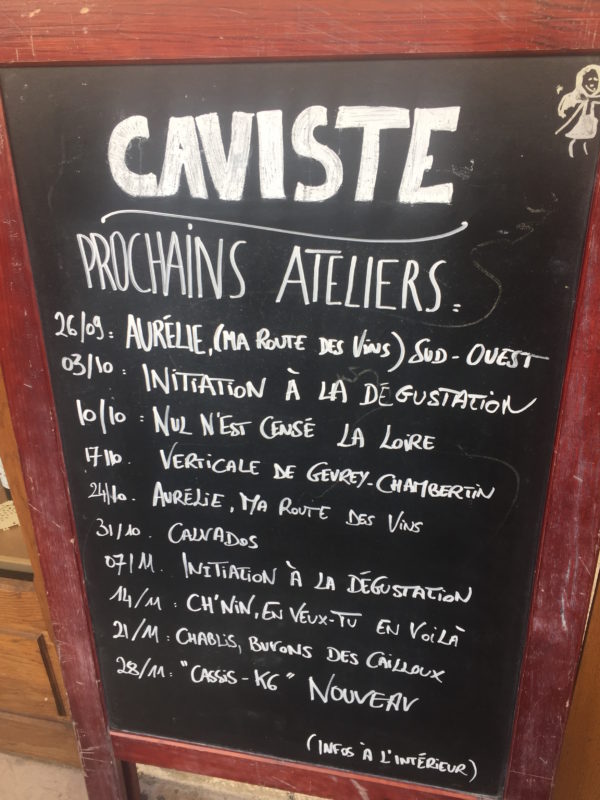 CAVISTE
PROCHAINS ATELIERS:
26/09: AURÉLIE, (MA ROUTE DES VINS) SUD-OUEST
03/10: INITIATION À LA DÉGUSTATION
10/10: NUL N'EST CENSÉ LA LOIRE
17/10. VERTICALE DE GEVREY-CHAMBERTIN
24/10. AURÉLIE, MA ROUTE DES VINS
31/10. CALVADOS
07/11. INITIATION À LA DÉGUSTATION
14/11: CH'NIN, EN VEUX-TU EN VOILÀ
21/11: CHABLIS, BUVONS DES CAILLOUX
28/11: "CASSIS-KG" NOUVEAU
(INFOS À L'INTÉRIEUR)